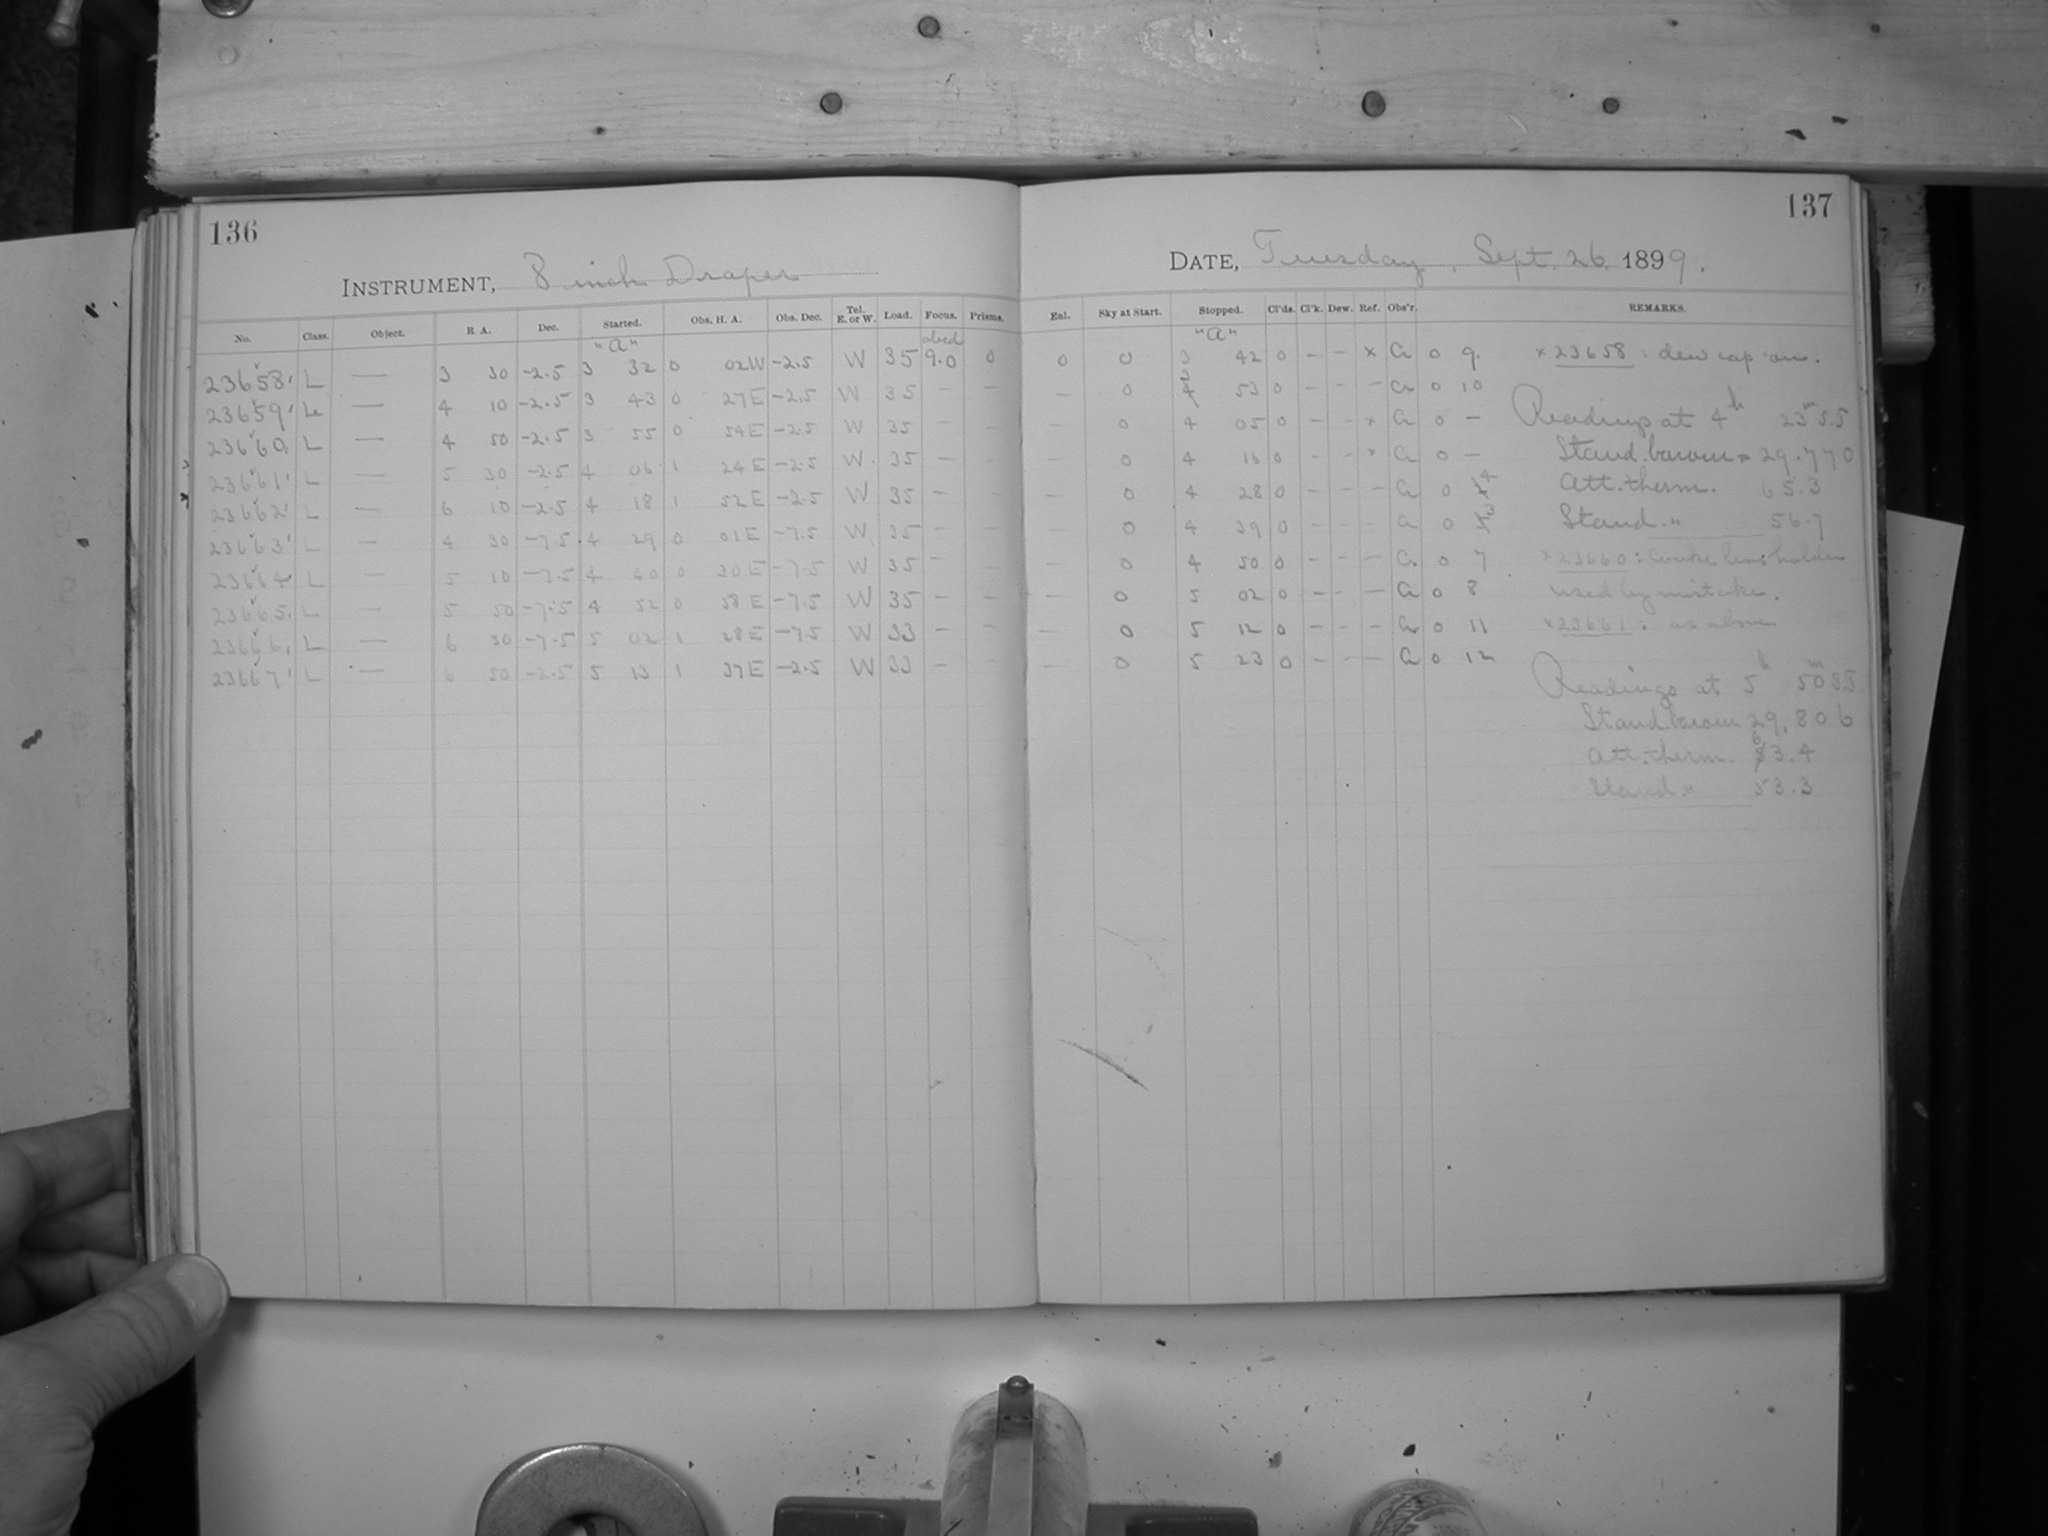 136
INSTRUMENT, 8 inch Draper
No. Class. Object. R. A. Dec. Started. Obs. H. A. Obs. Dec. Tel. E. or W. Load. Focus. Prisms.
"a" abcd
23658 L — 3 30 -2.5 3 32 0 02W -2.5 W 35 9.0 0
23659 L — 4 10 -2.5 3 43 0 27E -2.5 W 35 — —
23660 L — 4 50 -2.5 3 55 0 54E -2.5 W 35 — —
23661 L — 5 30 -2.5 4 06 1 24E -2.5 W 35 — —
23662 L — 6 10 -2.5 4 18 1 52E -2.5 W 35 — —
23663 L — 4 30 -7.5 4 29 0 01E -7.5 W 35 — —
23664 L — 5 10 -7.5 4 40 0 30E -7.5 W 35 — —
23665 L — 5 50 -7.5 4 52 0 58E -7.5 W 35 — —
23666 L — 6 30 -7.5 5 02 1 28E -7.5 W 33 — —
23667 L — 6 50 -2.5 5 13 1 37E -2.5 W 33 — —
137
DATE, Tuesday, Sept. 26, 1899.
Enl. Sky at Start. Stopped. Cl'ds. Cl'k. Dew. Ref. Obs'r. REMARKS.
"a"
0 0 3 42 0 – – x a 0 9
— 0 3 53 0 – – – a 0 10
— 0 4 05 0 – – x a 0 –
— 0 4 16 0 – – x a 0 –
— 0 4 28 0 – – – a 0 4
— 0 4 39 0 – – – a 0 3
— 0 4 50 0 – – – a 0 7
— 0 5 02 0 – – – a 0 8
— 0 5 12 0 – – – a 0 11
— 0 5 23 0 – – – a 0 12
x 23658: dew cap on.
Readings at 4h 23m 5.5
Stand. barom = 29.770
Att. therm. 65.3
Stand. " 56.7
x 23660: Cooke lens holder
used by mistake.
x 23661: as above
Readings at 5h 50m
Stand barom 29,806
Att. therm. 63.4
Stand " 53.3